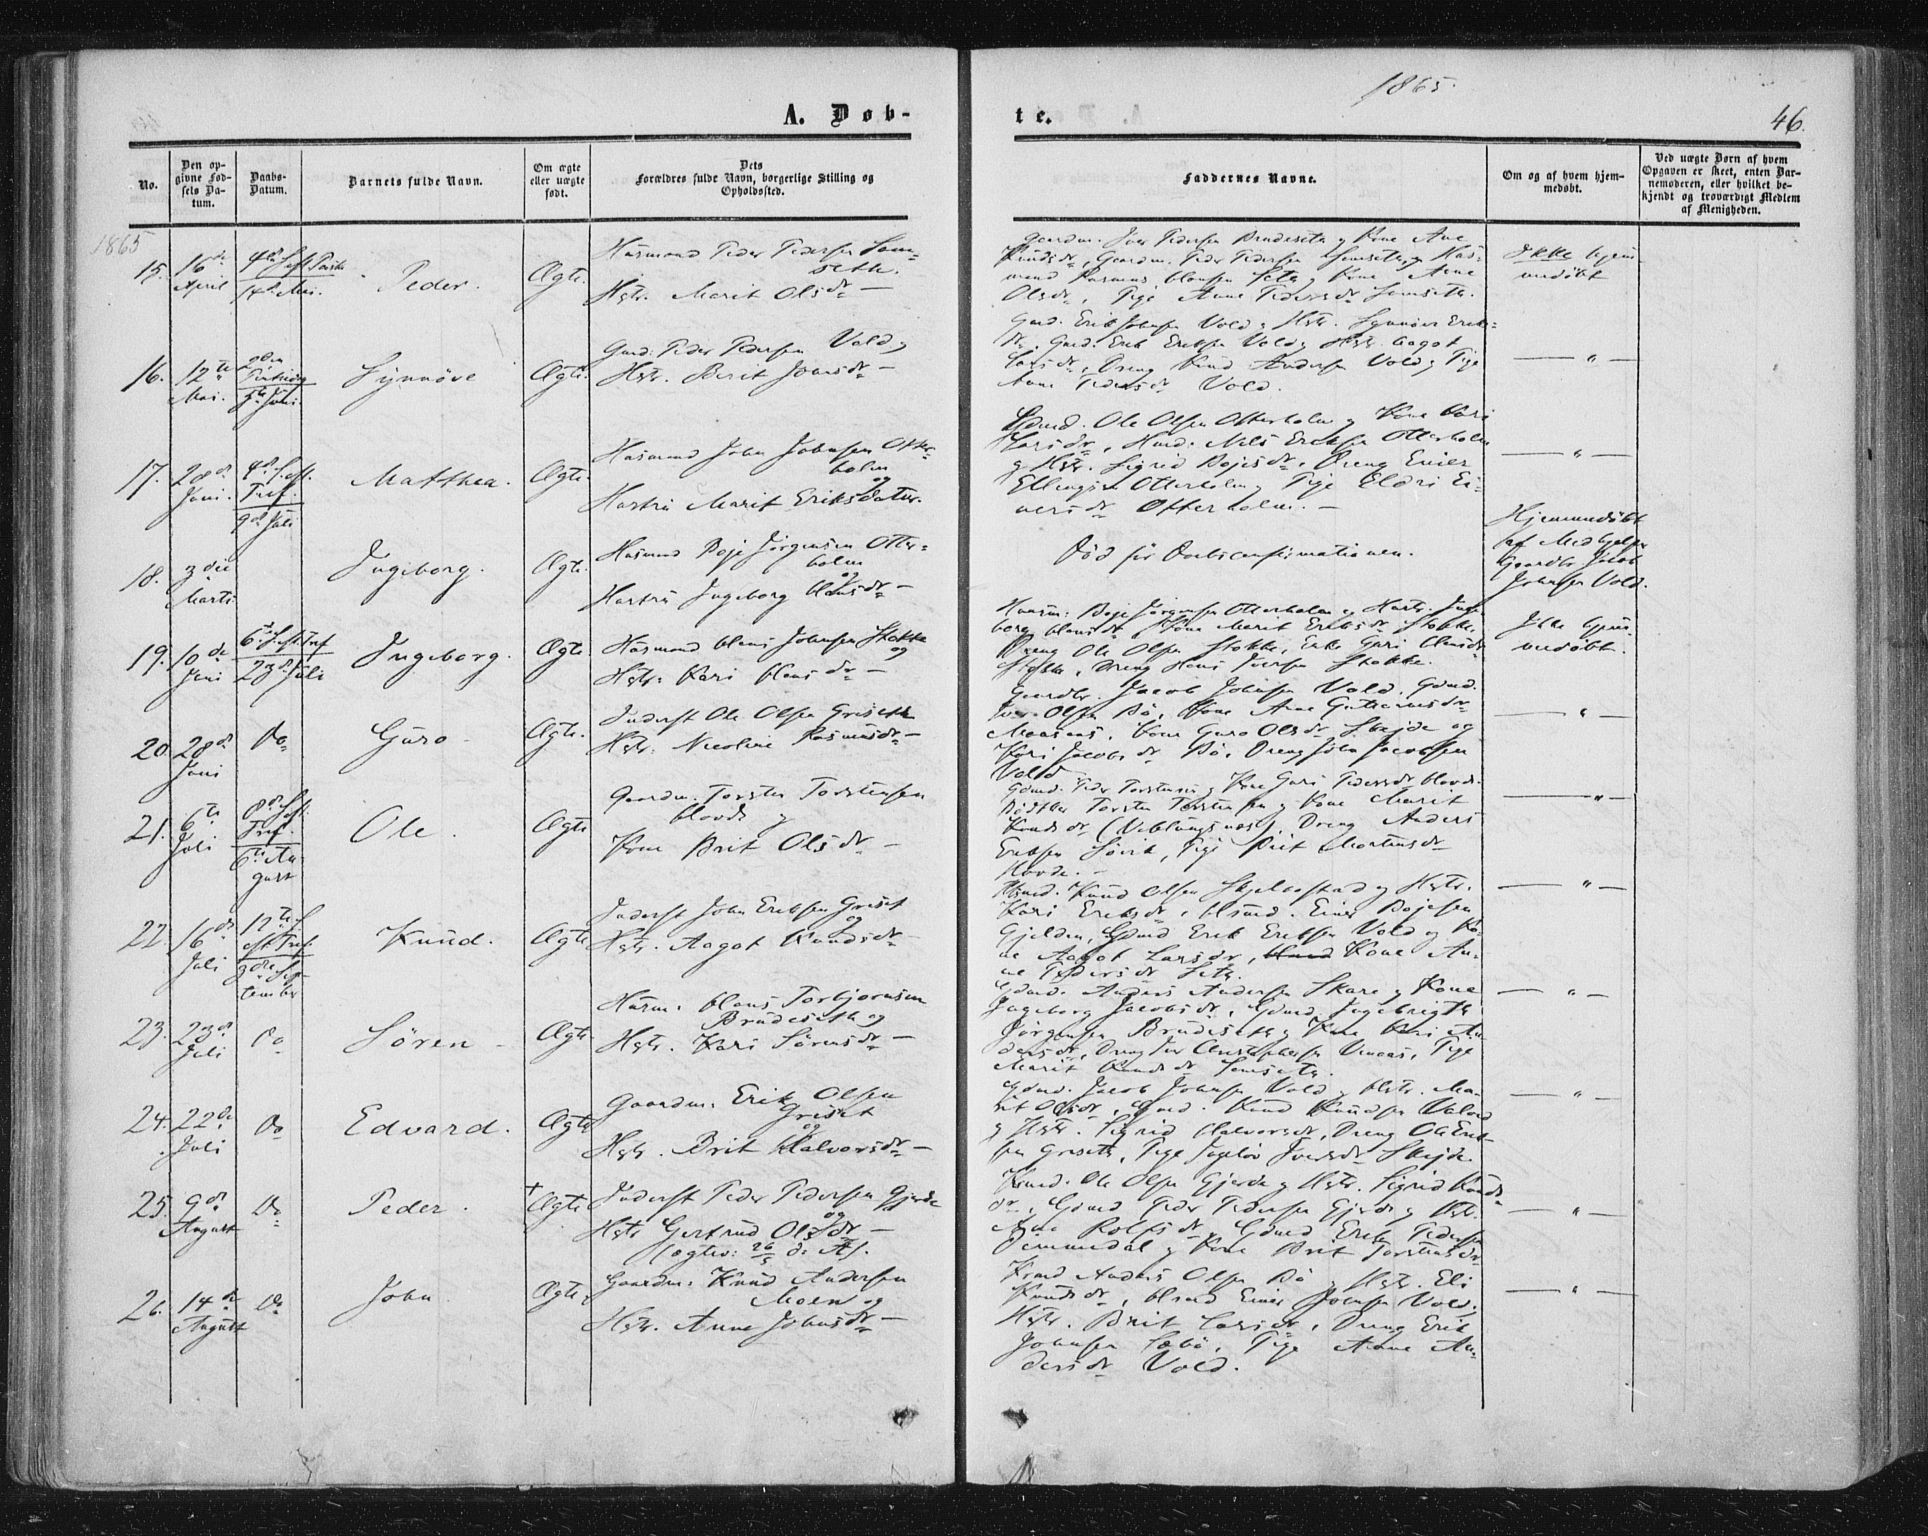 A. Døb-
te.
1865.
46.
No.
Den op-
givne Fød-
sels Da-
tum.
Daabs-
Datum.
Barnets fulde Navn.
Om ægte
eller uægte
født.
Dets
Forældres fulde Navn, borgerlige Stilling og
Opholdssted.
Faddernes Navne.
Om og af hvem hjem-
medøbt.
Ved uægte Børn af hvem
Opgaven er skeet, enten Bar-
nemoderen, eller hvilket be-
kjendt og troværdigt Medlem
af Menigheden.
1865
15.
16de
April
Peder.
Ægte.
Husmand Peder Pedersen Sem-
seth.
Hstr. Marit Olsdr
Gaardm. Iver Pedersen Brudeseth og Kone Ane
Knudsdr, Gaardm. Peder Pedersen Semseth, Hus-
Olsdr, Pige Anne Pedersdr Semseth.
Ikke hjem
medøbt
16.
12te
Mai.
Synnöve
Ægte.
Gmd. Peder Pedersen Vold og
Hstr. Berit Jonsdr
Gmd. Erik Johnsen Vold, Hstr. Synnöve Eriks-
dr, Gmd. Erik Eriksen Vold og Hstr. Aagot
Larsdr, Dreng Knud Andersen Vold, Pige
Anne Pedersdr Vold.
— " —
17.
28de
Juni.
9de Juli
Matthea.
Ægte.
Husmand John Johnsen Otter-
holm
og
Hustru Marit Eriksdatter.
Gdmd. Ole Olsen Otterholm og Kone Kari
Larsdr, Hmd. Nils Eriksen Otterholm
og Hstr. Sigrid Bojesdr, Dreng Einer
Ellingsen Otterholm, Pige Eldri Ei-
nersdr Otterholm.
— " —
18.
3die
Marts
Ingeborg.
Ægte.
Husmand Boje Jörgensen Otter-
holm
og
Hustru Ingeborg Hansdr
Död för Daabsconfirmationen.
Hjemmedøbt
af Medhjelper
Gaardbr Jacob
Johnsen Vold.
19.
10de
Juni
23de Juli
Ingeborg.
Ægte.
Husmand Hans Johnsen Stokke
og
Hstr. Kari Hansdr
Husm. Boje Jörgensen Otterholm og Hustr. Inge-
borg Hansdr, Kone Marit Eriksdr Stokke,
Dreng Ole Olsen Stokke, Enke Guri Hansdr
Stokke, Dreng Hans Iversen Stokke.
Ikke hjem
medøbt.
20.
28de
Juni
Do
Guro
Ægte.
Inderst Ole Olsen Griseth
Hstr. Nicoline Rasmusdr
Gaardbr. Jacob Johnsen Vold, Gdmd.
Iver Olsen Bö, Kone Ane Guttormsdr
Maasens, Kone Guro Olsdr Skejde og
Kari Jacobsdr Bö, Dreng John Jacobsen
Vold
— " —
21.
6te
Juli
6te Au
gust
Ole.
Ægte
Gaardm. Torsten Torstensen
Hovde og
Kone Brit Olsdr
Gdmd. Peder Torstensen og Kone Guri Pedersdr Hovde
Bödtker Torsten Torstensen og Kone Marit
Knudsdr (Veblungsnæset), Dreng Anders
Eriksen Sövik, Pige Brit Mortensdr
Hovde.
— " —
22.
16de
Juli
3die Sep
tember
Knud.
Ægte
Inderst John Eriksen Griset
og
Hstr. Aagot Knudsdr
Hsmd. Knud Olsen Skjelbostad og Hstr.
Kari Eriksdr, Hsmd. Einer Bojesen
Gjelden, Gdmd Erik Eriksen Vold og Ko-
ne Aagot Larsdr, Kone An-
ne Pedersdr Seth.
— " —
23.
23de
Juli
Do
Sören
Ægte
Husm. Hans Torbjornsen
Brudeseth og
Hstr. Kari Sörensdr
Gdmd. Anders Andersen Skare og Kone
Ingeborg Jacobsdr, Gdmd Ingebrigt
Jörgensen Brudeseth og Kone Kari An-
dersdr, Dreng Iver Christophersen Venaas, Pige
Marit Knudsdr Semseth.
— " —
24.
22de
Juli
Do
Edvard.
Ægte
Gaardm. Erik Olsen
Griset
og
Hstr. Brit Halvorsdr
Gdmd. Jacob Johnsen Vold, Hstr. Ma-
rit Olsdr, Gmd. Knud Knudsen Vold
og Hstr. Sigrid Halvorsdr, Dreng Ole Erik-
sen Griseth, Pige Ingeløv Iversdr Skejde.
— " —
25.
9de
August
Do
Peder.
+
Ægte
Inderst Peder Pedersen Gjerde
og
Hstr Gertrud Olsdr
(ægtev: 26/5 d. A).
Kmd. Ole Olsen Gjerde og Hstr. Sigrid Knuds-
dr, Gdmd Peder Pedersen Gjerde og Hstr.
Ane Rolfsdr, Gdmd Erik Pedersen
Vemmedal og Kone Brit Torstensdr
— " —
26.
14de
August
Do
John
Ægte
Gaardm. Knud Andersen
Moen og
Hstr. Anne Johnsdr
Kmd Anders Olsen Bö og Hstr. Eli
Knudsdr, Hsmd Einer Johnsen Vold,
Hstr. Brit Larsdr, Dreng Erik
Johnsen Sæbö, Pige Anne An-
dersdr Vold.
— " —